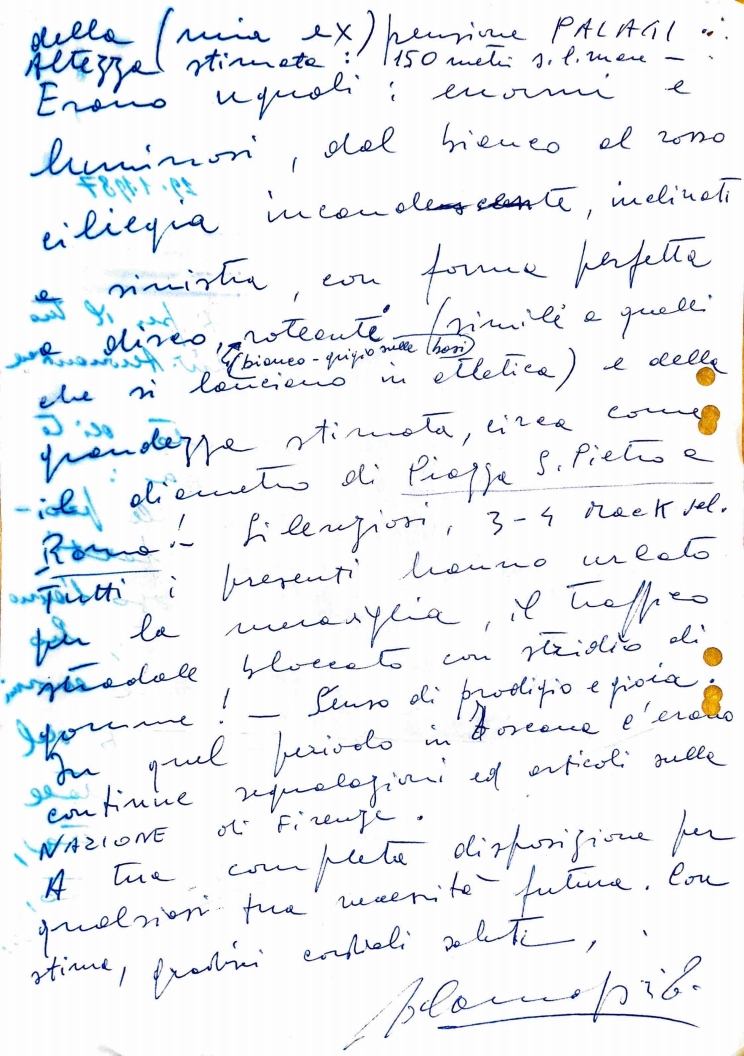 della (mia ex) pensione PALAGI
Altezza stimata : 150 metri s.l.mare –
Erano uguali : enormi e
luminosi, dal bianco al rosso
29.1.1987
ciliegia incandescente, inclinati
a sinistra, con forma perfetta
a disco, roteante (simile a quelli
(bianco-grigio sulle basi)
che si lanciano in atletica) e della
grandezza stimata, circa come
il diametro di Piazza S. Pietro a
Roma! – Silenziosi, 3-4 mack vel.
Tutti i presenti hanno urlato
per la meraviglia, il traffico
stradale bloccato con stridio di
gomme! – Senso di prodigio e gioia.
In quel periodo in Toscana c'erano
continue segnalazioni ed articoli sulla
NAZIONE di Firenze.
A tua completa disposizione per
qualsiasi tua necessità futura. Con
stima, graditi cordiali saluti,